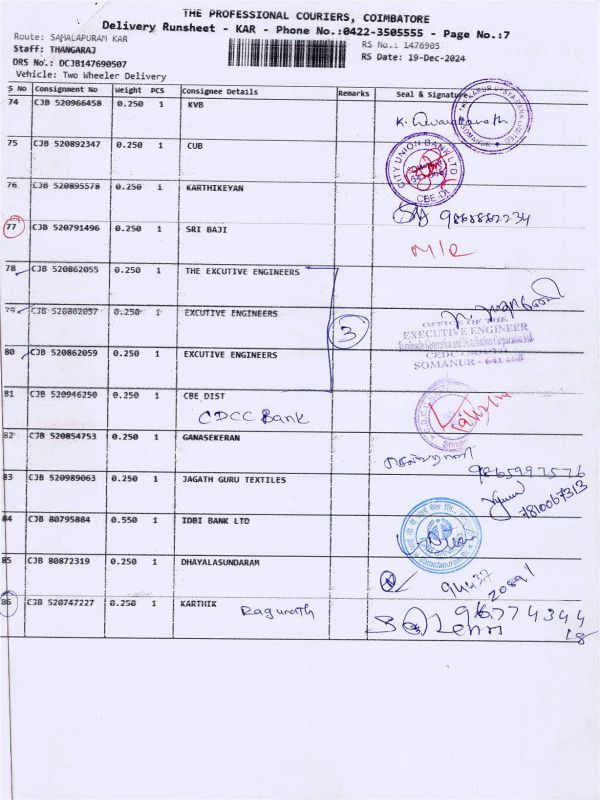 THE PROFESSIONAL COURIERS, COIMBATORE
Delivery Runsheet - KAR - Phone No.:0422-3505555 - Page No.:7
Route: SAMALAPURAM KAR
RS No.: 1476905
Staff: THANGARAJ
RS Date: 19-Dec-2024
DRS No.: DCJB147690507
Vehicle: Two Wheeler Delivery
S No Consignment No Weight PCS Consignee Details Remarks Seal & Signature
74 CJB 520966458 0.250 1 KVB
75 CJB 520892347 0.250 1 CUB
CITY UNION BANK LTD
CBE.DT
76 CJB 520895578 0.250 1 KARTHIKEYAN
9868882234
77 CJB 520791496 0.250 1 SRI BAJI
78 CJB 520862055 0.250 1 THE EXCUTIVE ENGINEERS
79 CJB 520862057 0.250 1 EXCUTIVE ENGINEERS
3
OFFICE OF THE
EXECUTIVE ENGINEER
SOMANUR - 641 668
80 CJB 520862059 0.250 1 EXCUTIVE ENGINEERS
81 CJB 520946250 0.250 1 CBE DIST
CDCC Bank
82 CJB 520854753 0.250 1 GANASEKERAN
9865997576
83 CJB 520989063 0.250 1 JAGATH GURU TEXTILES
7810067313
84 CJB 80795884 0.550 1 IDBI BANK LTD
85 CJB 80872319 0.250 1 DHAYALASUNDARAM
94437
20891
86 CJB 520747227 0.250 1 KARTHIK
Ragunath
96774344
18